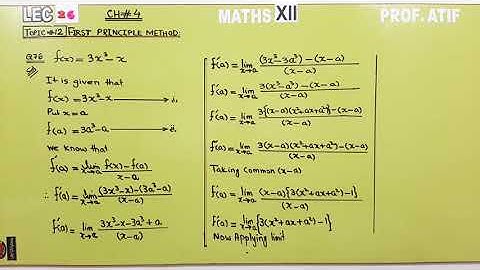 LEC 26
CH#4
MATHS XII
PROF. ATIF
TOPIC#12 FIRST PRINCIPLE METHOD:
Q76 f(x) = 3x³-x
Sol
It is given that
f(x) = 3x³-x → i,
Put x = a
f(a) = 3a³-a → ii,
we know that
f'(a) = lim x→a f(x)-f(a) / x-a
∴ f'(a) = lim x→a (3x³-x)-(3a³-a) / (x-a)
f'(a) = lim x→a 3x³-x-3a³+a / (x-a)
f'(a) = lim x→a (3x³-3a³)-(x-a) / (x-a)
f'(a) = lim x→a 3(x³-a³)-(x-a) / (x-a)
f'(a) = lim x→a 3{(x-a)(x²+ax+a²)}-(x-a) / (x-a)
f'(a) = lim x→a 3(x-a)(x²+ax+a²)-(x-a) / (x-a)
Taking Common (x-a)
f'(a) = lim x→a (x-a){3(x²+ax+a²)-1} / (x-a)
f'(a) = lim x→a {3(x²+ax+a²)-1}
Now Applying limit